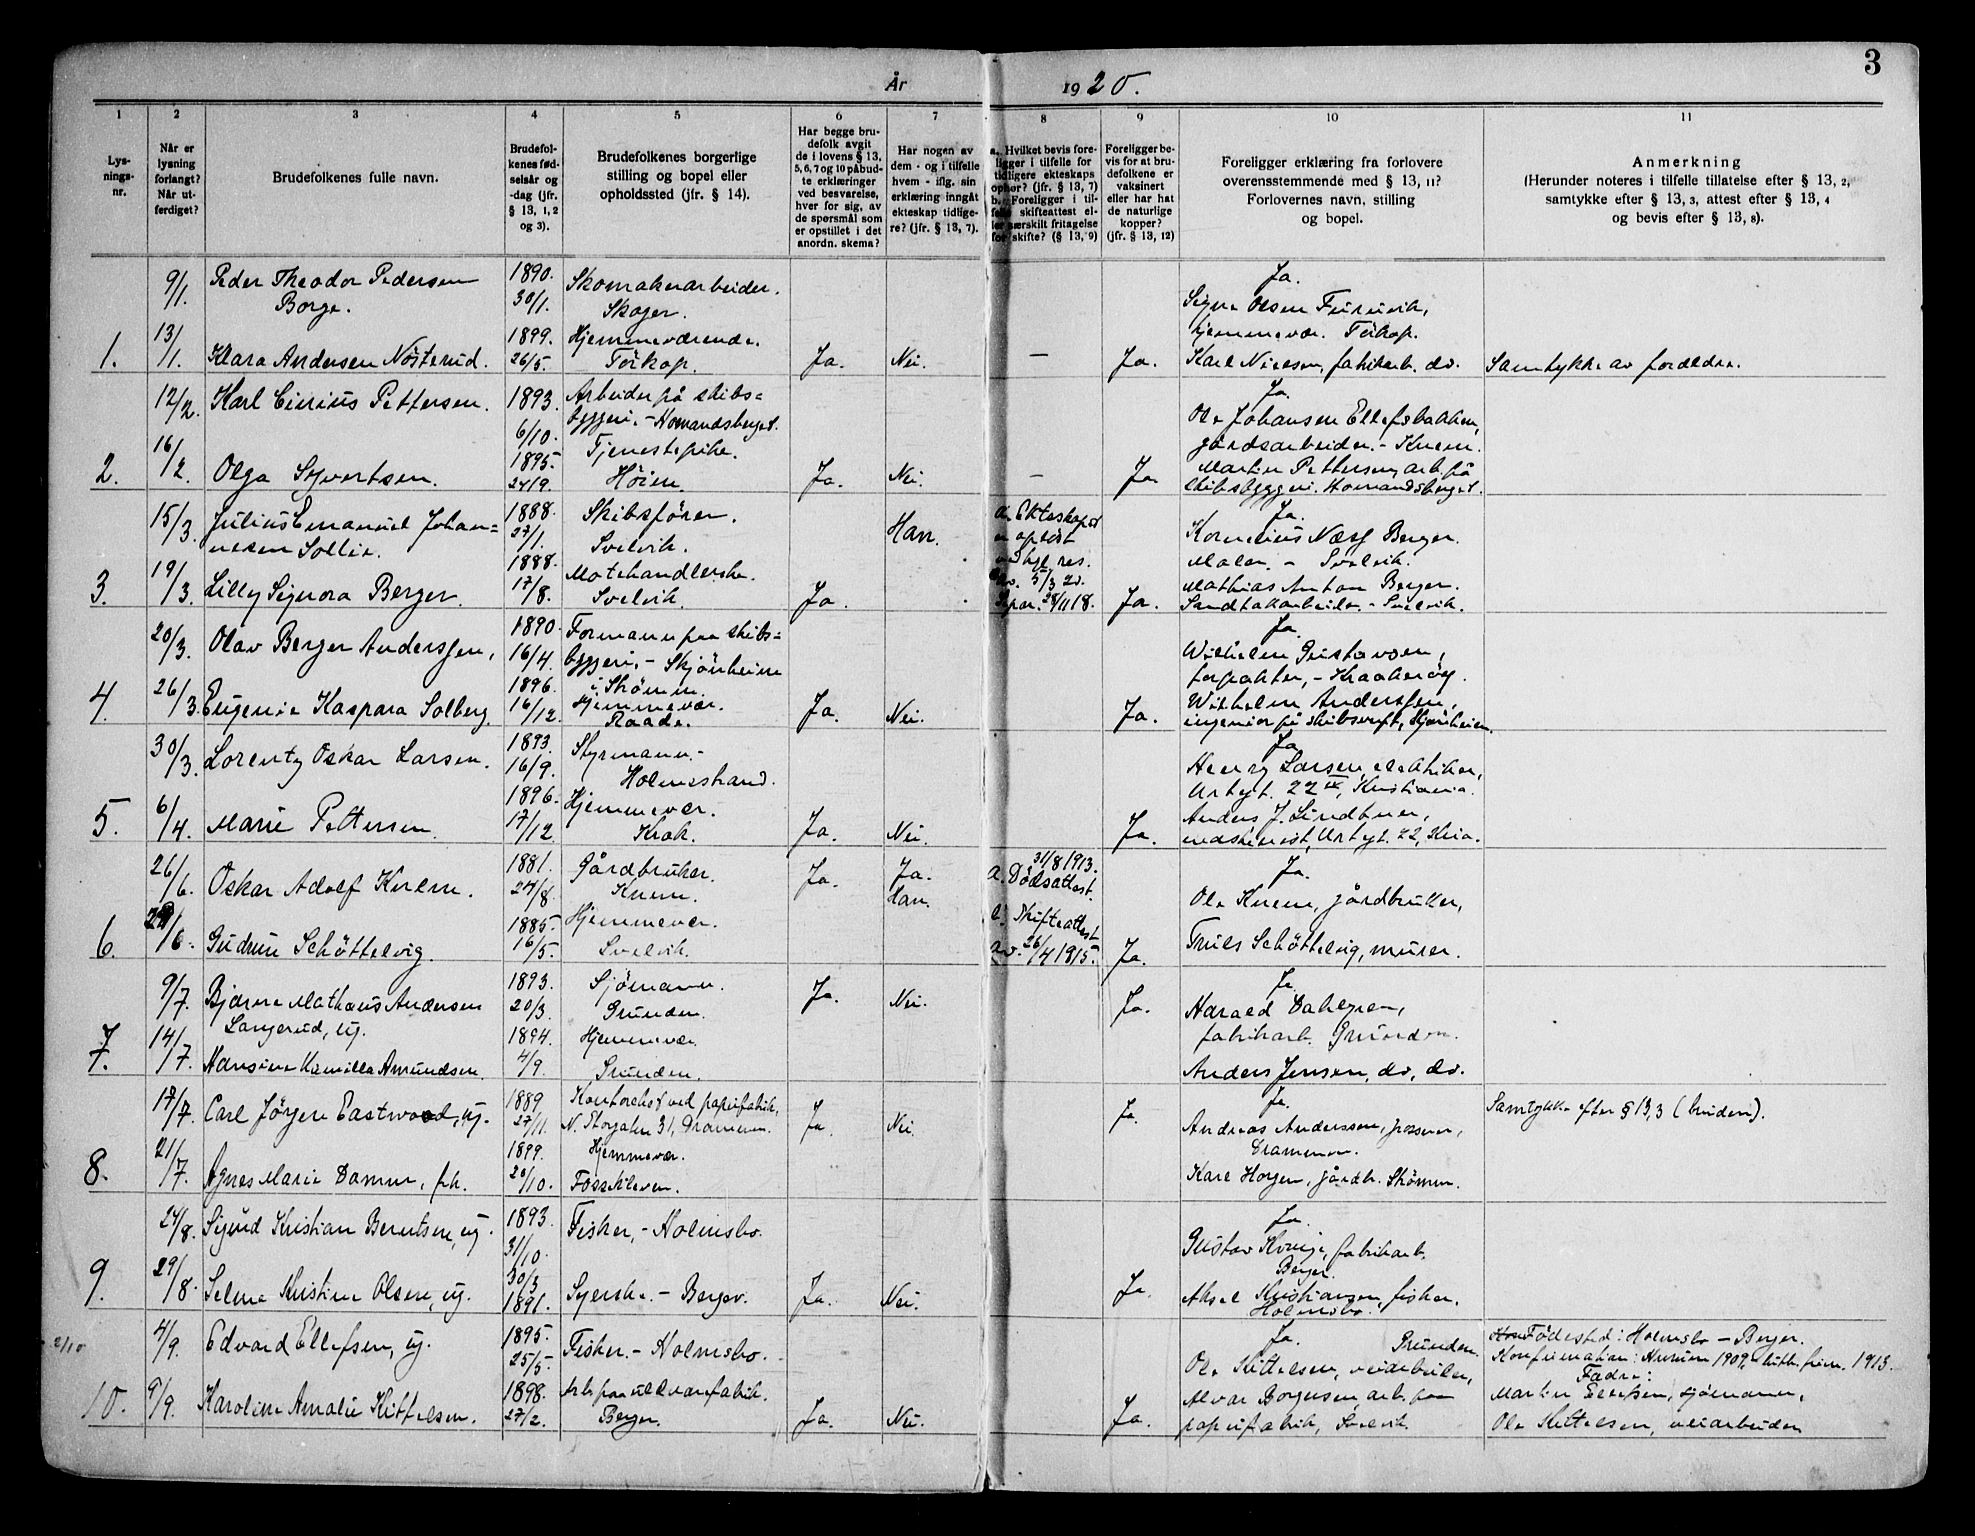 3
År 1920.
1 2 3 4 5 6 7 8 9 10 11
Lys-
nings-
nr.
Når er
lysning
forlangt?
Når ut-
ferdiget?
Brudefolkenes fulle navn.
Brudefol-
kenes fød-
selsår og
-dag (jfr.
§ 13, 1, 2
og 3).
Brudefolkenes borgerlige
stilling og bopel eller
opholdssted (jfr. § 14).
Har begge bru-
defolk avgit
de i lovens § 13,
5, 6, 7 og 10 påbud-
te erklæringer
ved besvarelse,
hver for sig, av
de spørsmål som
er opstillet i det
anordn. skema?
Har nogen av
dem - og i tilfelle
hvem - iflg. sin
erklæring inngåt
ekteskap tidlige-
re? (jfr. § 13, 7).
a. Hvilket bevis fore-
ligger i tilfelle for
tidligere ekteskaps
ophør? (jfr. § 13, 7)
b. Foreligger i til-
felle skifteattest el-
ler særskilt fritagelse
for skifte? (§ 13, 9)
Foreligger be-
vis for at bru-
defolkene er
vaksinert
eller har hat
de naturlige
kopper?
(jfr. § 13, 12)
Foreligger erklæring fra forlovere
overensstemmende med § 13, 11?
Forlovernes navn, stilling
og bopel.
Anmerkning
(Herunder noteres i tilfelle tillatelse efter § 13, 2,
samtykke efter § 13, 3, attest efter § 13, 4
og bevis efter § 13, 8).
9/1. Peder Theodor Pedersen 1890. Skomakerarbeider. Ja.
Borge. 30/1. Skoger. Signe Olsen Furuvik,
13/1. 1899. Hjemmeværende. hjemmevær. Törkop.
1. Klara Andersen Nösterud. 26/5. Törkop. Ja. Nei. — Ja. Karl Nielsen, fabrikarb. do. Samtykke av foreldre.
12/2. Karl Pettersen. 1893. Arbeider på skibs- Ja.
6/10. byggeri, - Homandsberget. Ole Johansen Ellefsbakken,
16/2. 1895. Tjenestepike. gårdsarbeider. - Knem.
2. Olga Syvertsen. 24/9. Høien. Ja. Nei. — Ja. Martin Pettersen, arb. på
skibsbyggeri. Homandsberget.
15/3. Julius Emanuel Johan- 1888. Skibsförer. Han. a. Ekteskapet Ja.
nesen Sollie. 27/1. Svelvik. er oplöst Kornelius Næss Berger.
19/3. 1888. Motehandlerske. ved kgl. res. Maler. - Svelvik.
3. Lilly Signora Berger. 17/8. Svelvik. Ja. av. 5/3 20. Ja. Mathias Anton Berger.
Separ. 28/11 18. Sandtakarbeider. - Svelvik.
20/3. Olav Berger Anderssen, 1890. Formann paa skibs- Ja.
16/4. byggeri, - Skjönheim Wilhelm Gustavsen,
26/3. 1896. i Strömm. forpakter, -
4. Eugenie Kaspara Solberg. 16/12. Hjemmevær. Raade. Ja. Nei. Ja. Wilhelm Anderssen,
ingeniør på skibsverft, Skjønheim.
30/3. Lorentz Oskar Larsen. 1893. Styrmann. - Ja
16/9. Holmestrand. Henry Larsen, elektriker,
6/4. 1896. Hjemmevær. Urtegt. 22 IV, Kristiania.
5. Marie Pettersen. 17/12. Krok. Ja. Nei. Ja. Anders J. Lindtner,
maskinist, Urtegt. 22, Kria.
26/6. Oskar Adolf Knem. 1881. Gårdbruker. Ja. Ja. 31/8 1913. Ja.
24/8. Knem. Han. a. Dödsattest. Ole Knem, gårdbruker,
29/6. 1885. Hjemmevær. b. Skifteattest
6. Gudrun Schöttelvig. 16/5. Svelvik. av. 26/4 1915. Ja. Truls Schöttelvig, murer.
9/7. Bjarne Mathæus Andersen 1893. Sjömann. Ja. Nei. Ja. Ja.
Langerud, ug. 20/3. Grunden. Harald Dahlgren,
14/7. 1894. Hjemmevær. fabrikarb. Grunden.
7. Hansine Kamilla Amundsen. 4/9. Grunden. Anders Jensen, do, do.
17/7. Carl Jörgen Eastwood, ug. 1889 Kontorchef ved papirfabrik, Ja. Nei. Ja. Ja. Samtykke efter § 13, 3 (bruden).
27/11. N. Storgaten 31, Drammen. Andreas Anderssen,
21/7. 1899. Hjemmevær. Drammen.
8. Agnes Marie Damm, frk. 20/10. Fossekleven. Karl Horgen, gårdbr. Strömm.
24/8. Sigurd Kristian Berntsen, ug. 1893. Fisker, - Holmsbo. Ja.
31/10. Gustav Kvinge, fabrikarb.
29/8. 30/3 Berger.
9. Selma Kristine Olsen, ug. 1891. Syerske. - Berger. Ja. Nei. Ja. Aksel Kristiansen, fisker.
Holmsbo.
2/10 4/9. Edvard Ellefsen, ug. 1895. Fisker. - Holmsbo. Ja. Grunden. Födested: Holmsbo - Berger.
25/5. Ole Kittelsen, veiarbeider, Konfirmation: Hurum 1909. 1913.
Fædre:
10. 9/9. Karoline Amalie Kittelsen. 1898. Arb. paa uldvarefabrik. Alvar Borgersen, arb. paa Martin Ellefsen, sjömann,
27/2. Berger. Ja. Nei. Ja. papirfabrik, Svelvik. Ole Kittelsen, veiarbeider